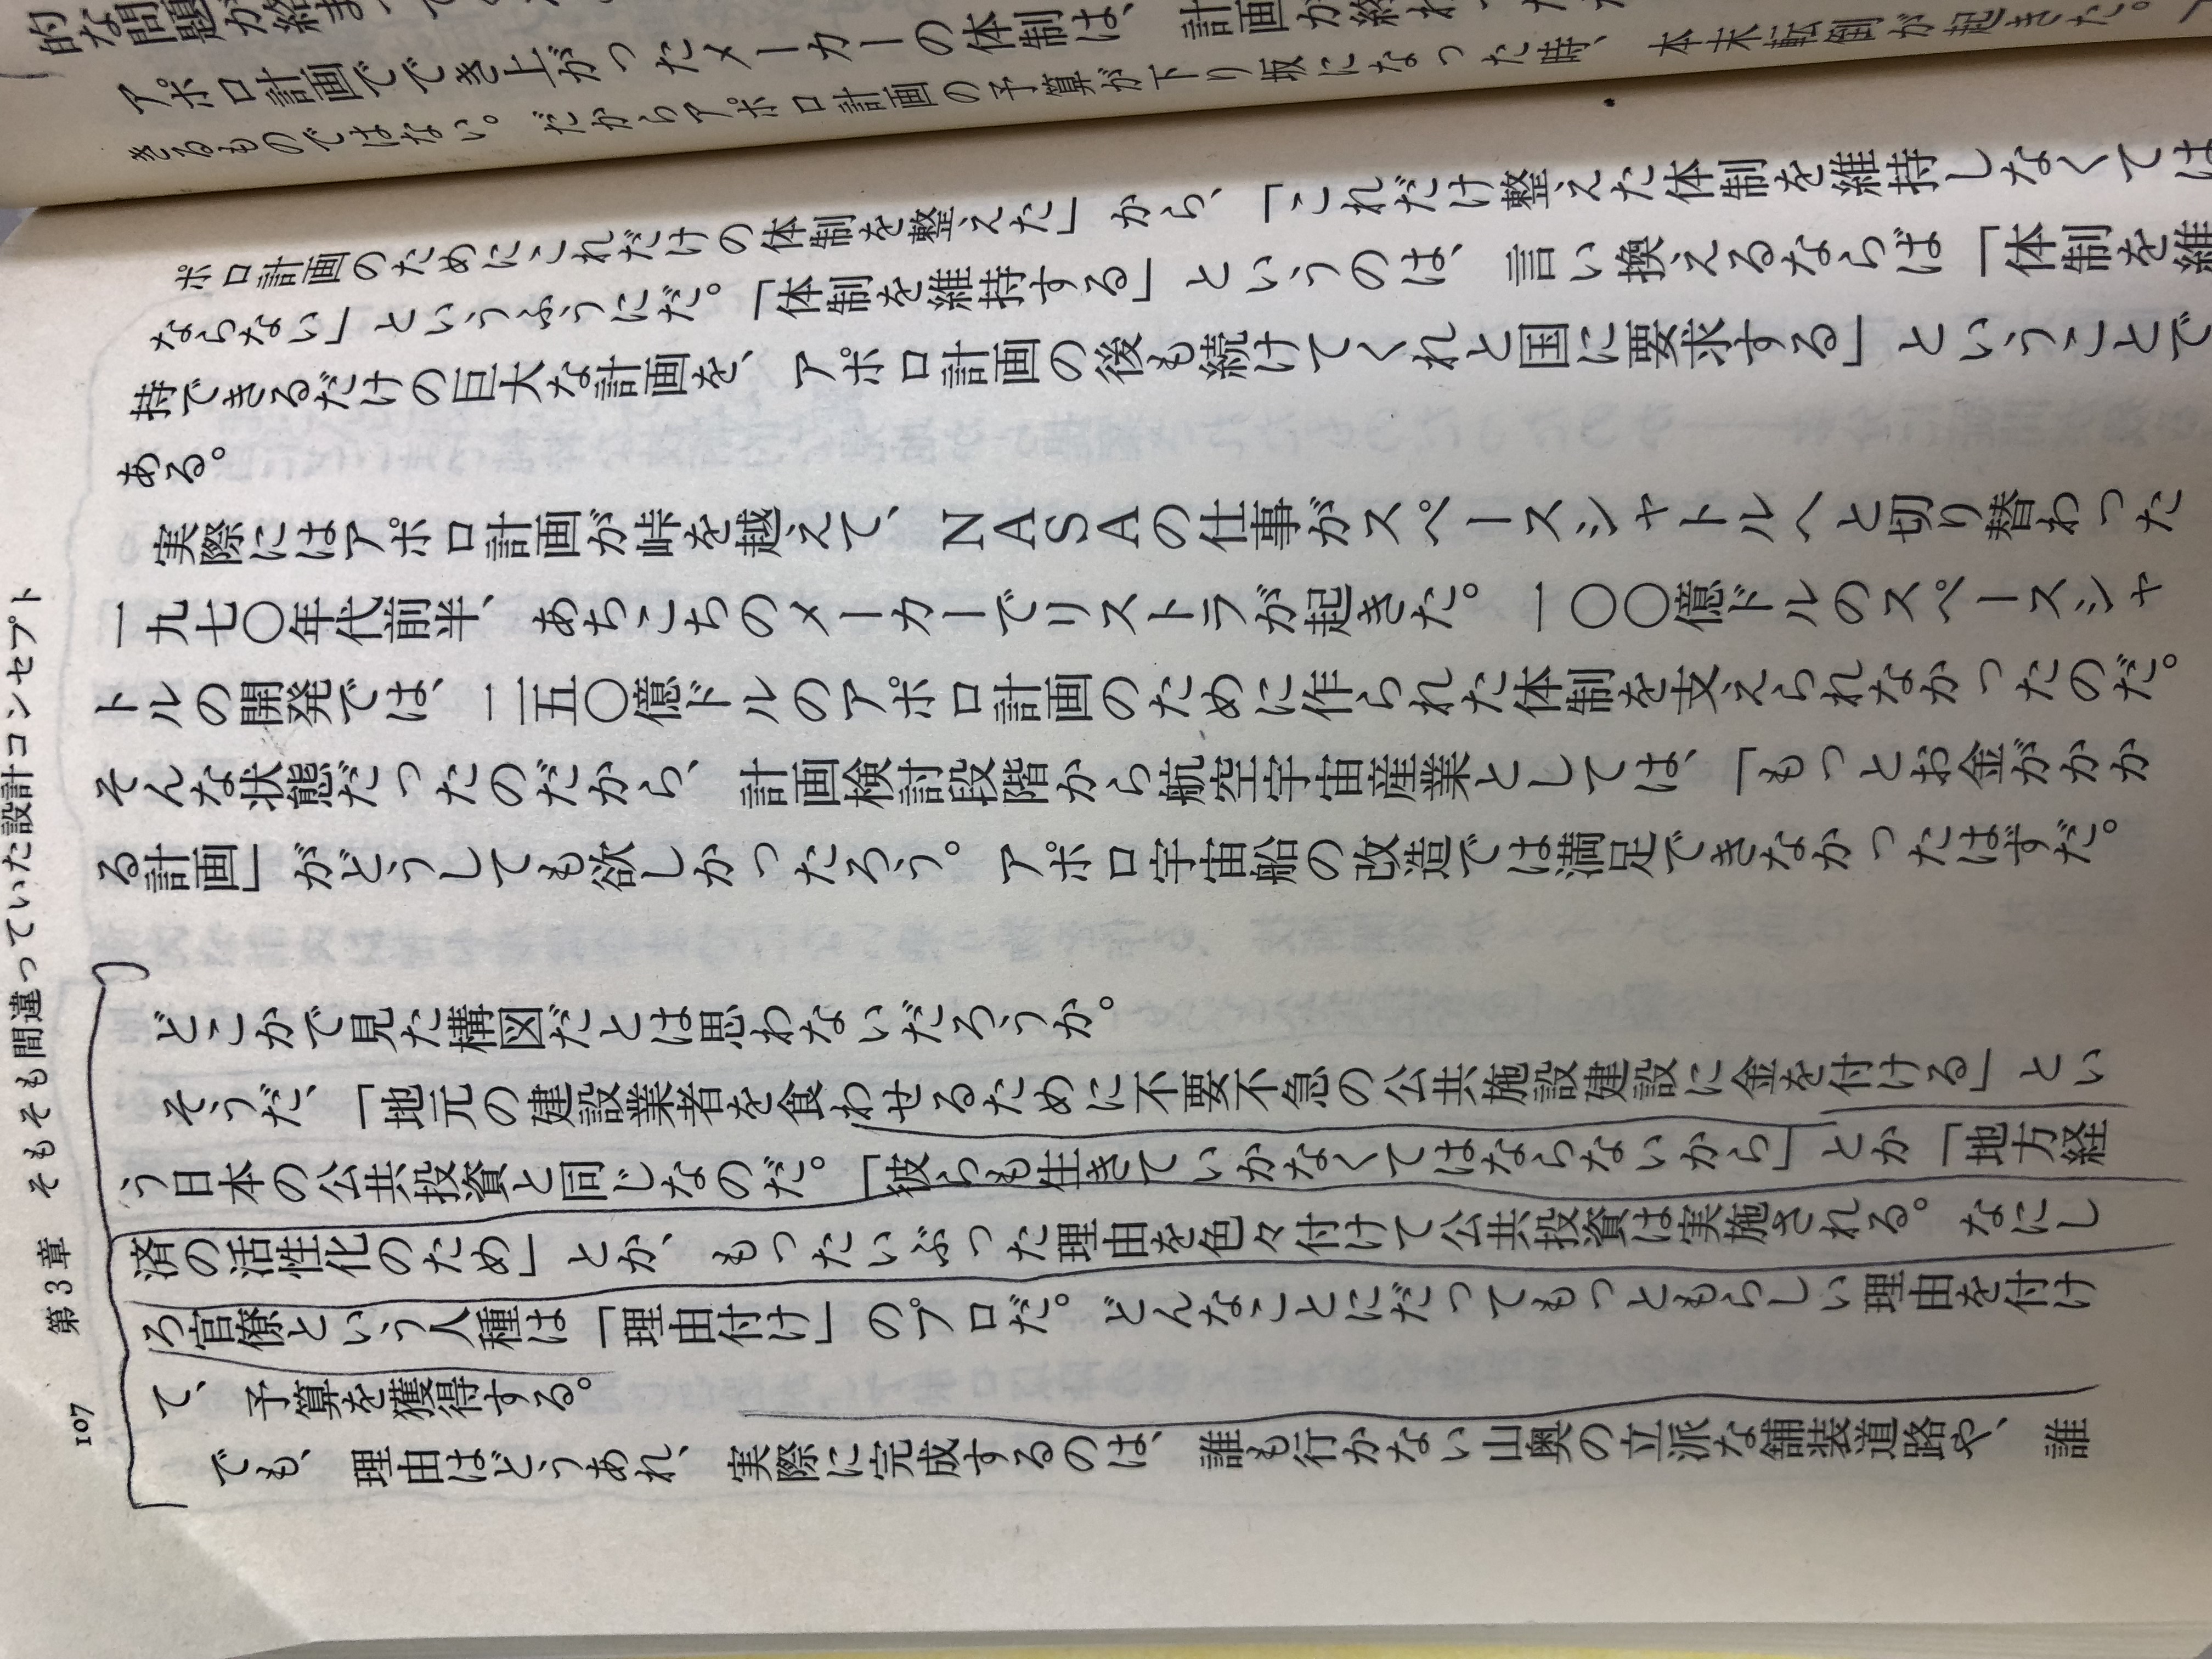 的な問題が絡ま
アポロ計画でき上がったメーカーの体制は、計画が終わ
きるものではない。だからアポロ計画の予算が下り坂になった時、本末転倒が起きた。「
ポロ計画のためにこれだけの体制を整えた」から、「これだけ整えた体制を維持しなくては
ならない」というふうにだ。「体制を維持する」というのは、言い換えるならば「体制を維
持できるだけの巨大な計画を、アポロ計画の後も続けてくれと国に要求する」ということで
ある。
実際にはアポロ計画が峠を越えて、NASAの仕事がスペースシャトルへと切り替わった
一九七〇年代前半、あちこちのメーカーでリストラが起きた。一〇〇億ドルのスペースシャ
トルの開発では、二五〇億ドルのアポロ計画のために作られた体制を支えられなかったのだ。
そんな状態だったのだから、計画検討段階から航空宇宙産業としては、「もっとお金がかか
る計画」がどうしても欲しかったろう。アポロ宇宙船の改造では満足できなかったはずだ。
どこかで見た構図だとは思わないだろうか。
そうだ、「地元の建設業者を食わせるために不要不急の公共施設建設に金を付ける」とい
う日本の公共投資と同じなのだ。「彼らも生きていかなくてはならないから」とか「地方経
済の活性化のため」とか、もったいぶった理由を色々付けて公共投資は実施される。なにし
ろ官僚という人種は「理由付け」のプロだ。どんなことにだってもっともらしい理由を付け
て、予算を獲得する。
でも、理由はどうあれ、実際に完成するのは、誰も行かない山奥の立派な舗装道路や、誰
107 第3章 そもそも間違っていた設計コンセプト